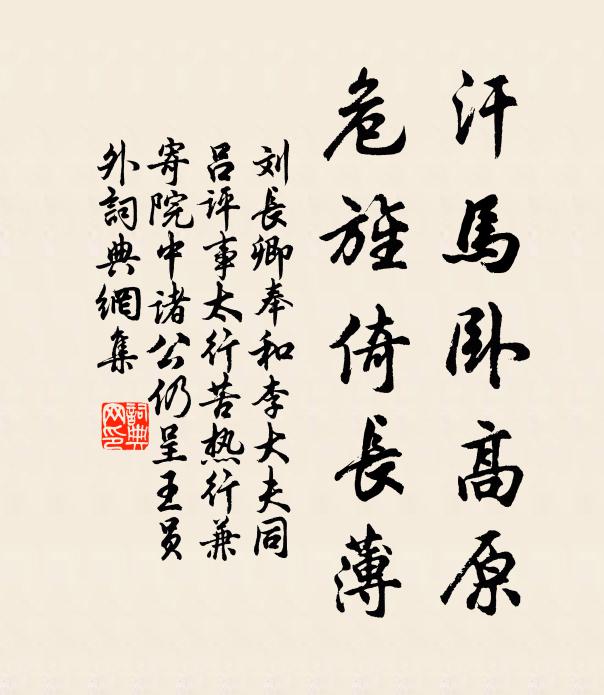 汗馬卧高原
危旌倚長薄
刘長卿奉和李大夫同
吕评事太行苦热行兼
寄院中诸公仍呈王員
外詞典網集
詞典网印